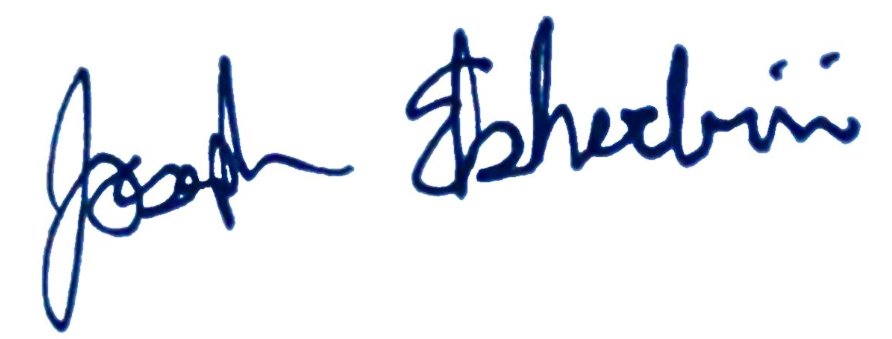 Joseph Elsherbini